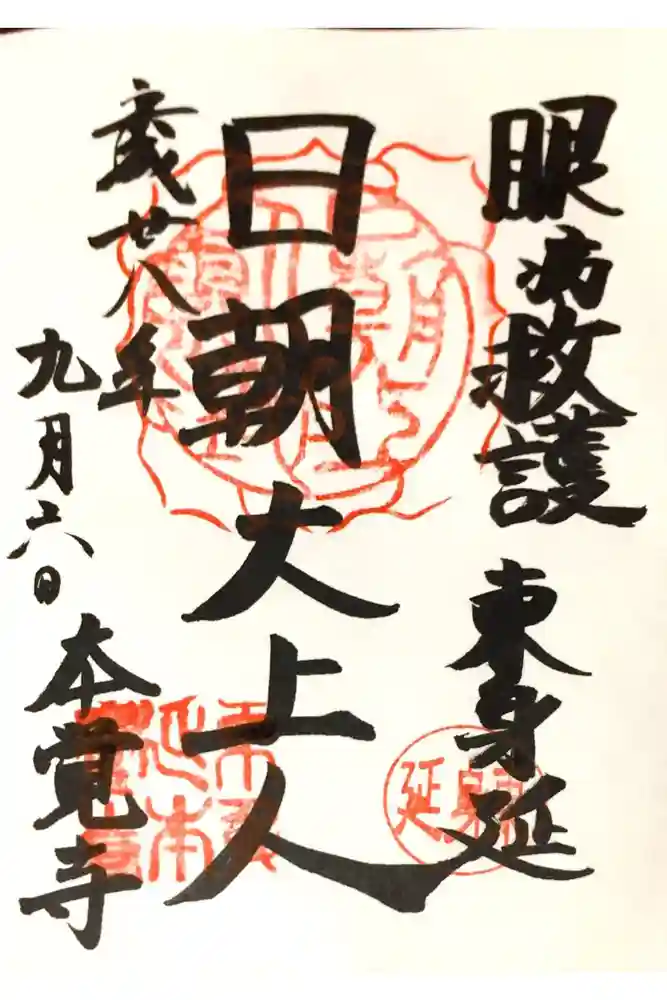 眼病救護
東身延
日朝大上人
平成廿八年
九月六日
本覚寺
東身延